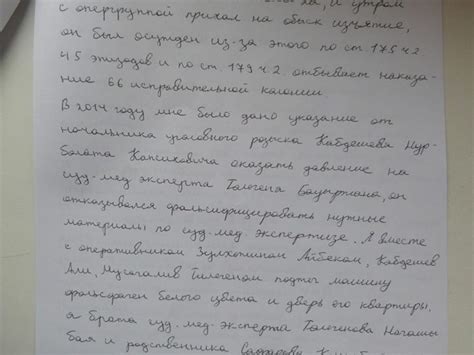 с опергруппой приехал на обыск изъятие,
он был осужден из-за этого по ст. 175 ч 2
45 эпизодов и по ст. 179 ч 2. отбывает наказа-
ние 66 исправительной колонии
В 2014 году мне было дано указание от
начальника уголовного розыска Кабдешева Нур-
болата Капсиховича оказать давление на
суд. мед эксперта Толегена Бауыржана, он
отказывался фальсифицировать нужные
материалы по суд. мед. экспертизе. Я вместе
с оперативником Айбеком, Кабдешев
Али, Мусагалив Тилегеном машину
белого цвета и дверь его квартиры,
а брата суд. мед. эксперта Толегенова
бая и родственника